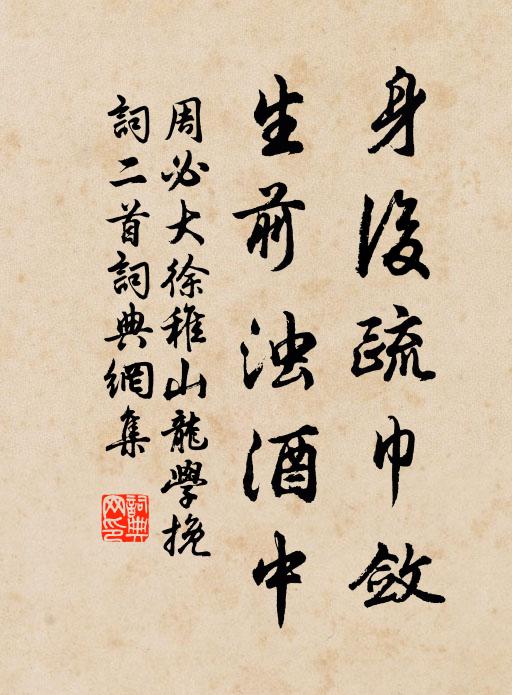 身後疏巾斂
生前浊酒中
周必大徐稚山龍學挽
詞二首詞典網集
詞典
网印